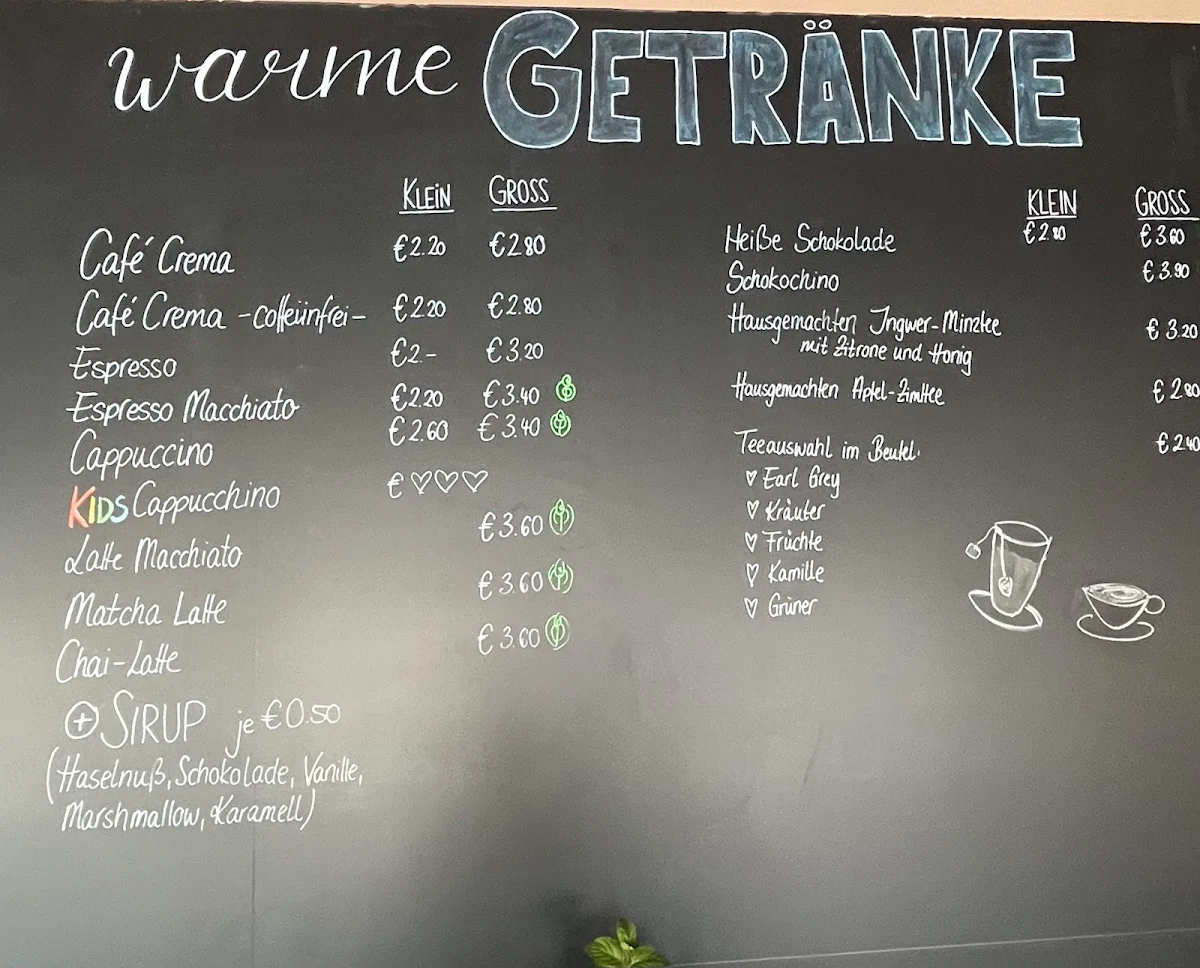 warme GETRÄNKE
KLEIN GROSS
Café Crema €2.20 €2.80
Café Crema -coffeiinfrei- €2.20 €2.80
Espresso €2.- €3.20
Espresso Macchiato €2.20 €3.40
Cappuccino €2.60 €3.40
KIDS Cappucchino € ♡♡♡
Latte Macchiato €3.60
Matcha Latte €3.60
Chai-Latte €3.60
+ SIRUP je €0.50
(Haselnuß, Schokolade, Vanille,
Marshmallow, Karamell)
KLEIN GROSS
Heiße Schokolade €2.80 €3.60
Schokochino €3.90
Hausgemachten Ingwer-Minztee €3.20
mit Zitrone und Honig
Hausgemachten Apfel-Zimttee €2.80
Teeauswahl im Beutel. €2.40
♡ Earl Grey
♡ Kräuter
♡ Früchte
♡ Kamille
♡ Grüner